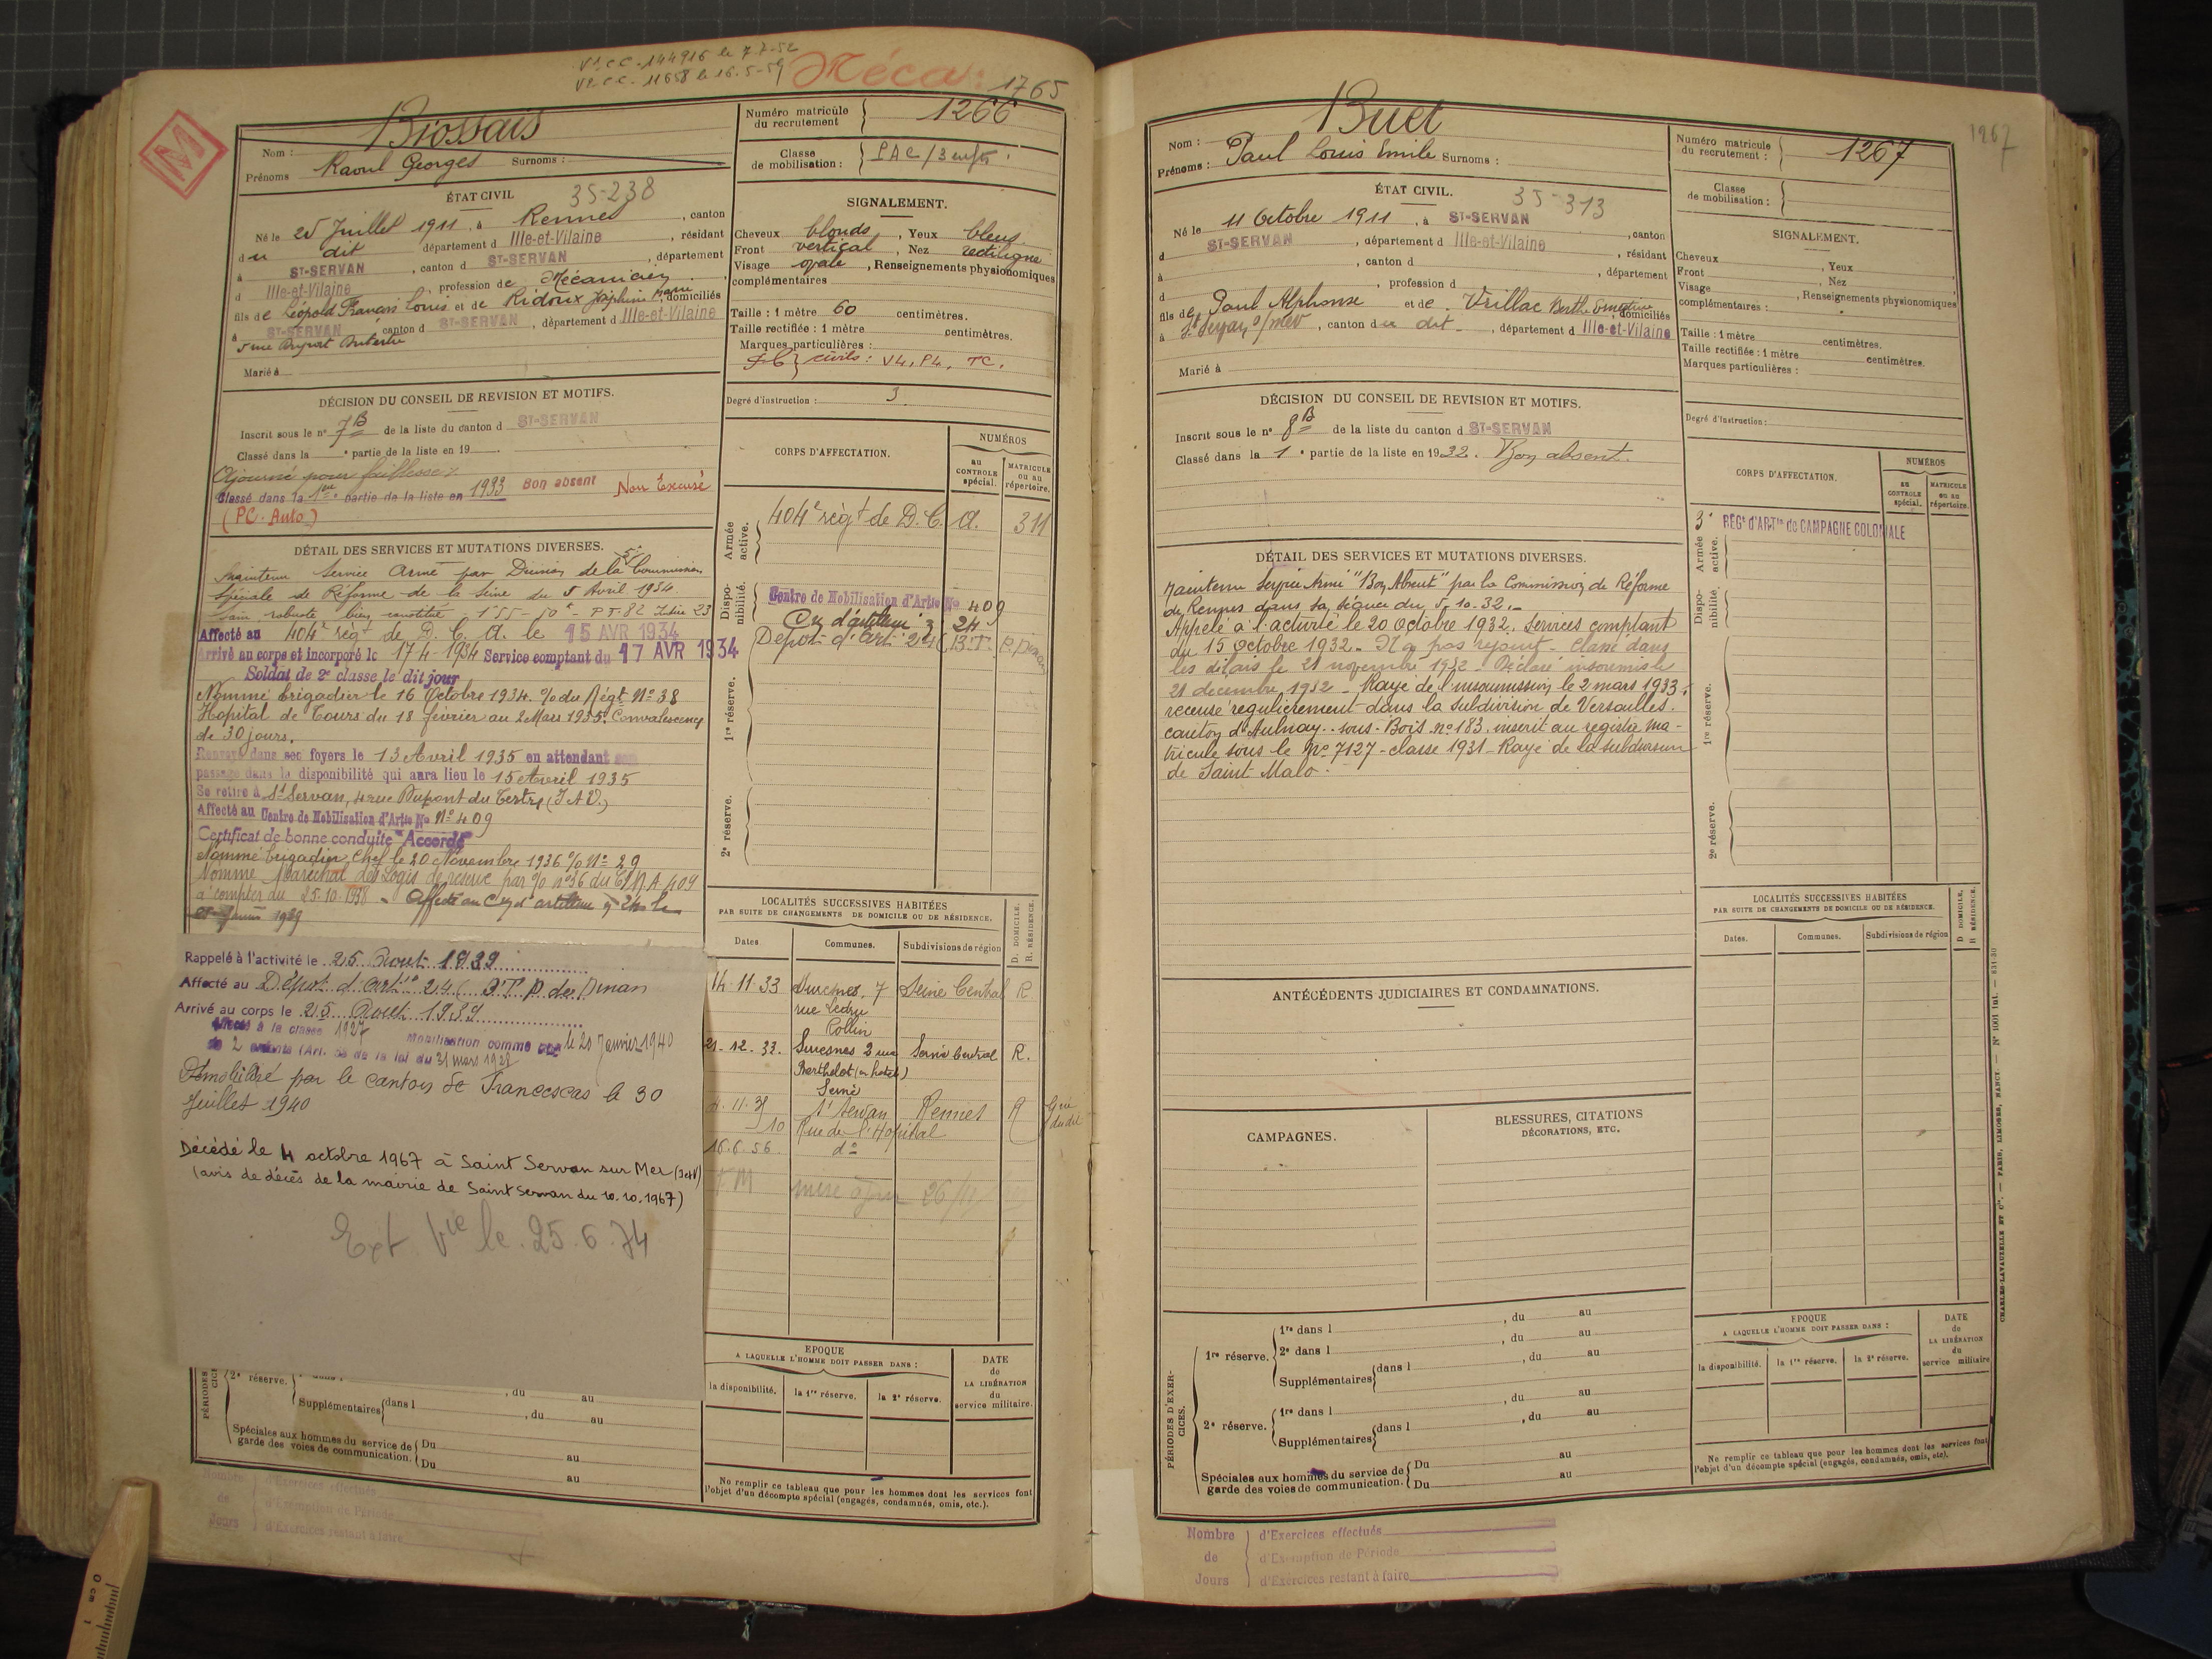 Vr CC. 144916 le 7.7.52
Vr CC. 11658 le 16.5.59
Méca:
1765
M
Nom : Biossais
Prénoms Raoul Georges Surnoms :
Numéro matricule du recrutement 1266
Classe de mobilisation : PAC / 3 enfts
ÉTAT CIVIL
35-238
Né le 25 Juillet 1911, à Rennes, canton
du dit département d Ille-et-Vilaine, résidant
à ST-SERVAN, canton d ST-SERVAN, département
d Ille-et-Vilaine, profession de Mécanicien
fils de Léopold Francis Louis et de Ridoux Joséphine Marie, domiciliés
à ST-SERVAN canton d ST-SERVAN, département d Ille-et-Vilaine
5 rue
Marié à
SIGNALEMENT.
Cheveux blonds, Yeux bleus
Front vertical, Nez rectiligne
Visage ovale, Renseignements physionomiques
complémentaires
Taille : 1 mètre 60 centimètres.
Taille rectifiée : 1 mètre centimètres.
Marques particulières :
civils : V4, P4, TC.
Degré d'instruction : 3.
DÉCISION DU CONSEIL DE REVISION ET MOTIFS.
Inscrit sous le n° 7 B de la liste du canton d ST-SERVAN
Classé dans la e partie de la liste en 19
Ajourné pour faiblesse
Classé dans la 1ère partie de la liste en 1933 Bon absent Non Excusé
(PC. Auto)
CORPS D'AFFECTATION.
NUMÉROS
au CONTROLE spécial.
MATRICULE ou au répertoire.
Armée active.
404e régt de D.C.A. 311
Disponibilité.
Centre de Mobilisation d'Artie No 409
Cm d'artillerie 24
Dépôt d'Art. 24 (B.T. P. Dinan
1re réserve.
2e réserve.
DÉTAIL DES SERVICES ET MUTATIONS DIVERSES.
Maintenu Service Armé par Décision de la 5e Commission
Spéciale de Réforme de la Seine du 5 Avril 1934
Sain robuste bien constitué 1m55 - 50k - P.T. 82 Indice 23
Affecté au 404e régt de D.C.A. le 15 AVR 1934
Arrivé au corps et incorporé le 17-4-1934 Service comptant du 17 AVR 1934
Soldat de 2e classe le dit jour
Nommé brigadier le 16 Octobre 1934. % du Régt No 38
Hopital de Tours du 18 février au 2 Mars 1935. Convalescence
de 30 jours.
Renvoyé dans ses foyers le 13 Avril 1935 en attendant son
passage dans la disponibilité qui aura lieu le 15 Avril 1935
Se retire à St Servan, 4 rue Dupont du Tertre (I & V.)
Affecté au Centre de Mobilisation d'Artie No No 409
Certificat de bonne conduite "Accordé"
Nommé brigadier Chef le 20 Novembre 1936 % No 29
Nommé Maréchal des Logis de réserve par % no 36 du C.M.A. 409
à compter du 25.10.1938 - Affecté au Cm d'artillerie no 24 le
Janvier 1939
Rappelé à l'activité le 25 Aout 1939
Affecté au Dépôt d'Artie 24 ( BT P. de Dinan
Arrivé au corps le 25 Aout 1939
Affecté à la classe 1927 Mobilisation comme père le 20 Janvier 1940
de 2 enfants (Art. 58 de la loi du 31 mars 1928
Démobilisé par le canton de Francescas le 30
Juillet 1940
Décédé le 4 octobre 1967 à Saint Servan sur Mer (I et V)
(avis de décès de la mairie de Saint Servan du 10.10.1967)
Ext Vie le. 25.6.74
LOCALITÉS SUCCESSIVES HABITÉES
PAR SUITE DE CHANGEMENTS DE DOMICILE OU DE RÉSIDENCE.
Dates Communes. Subdivisions de région D. DOMICILE. R. RÉSIDENCE.
14-11-33 Suresnes, 7 rue Ledru Rollin Seine Central R
21-12-33. Suresnes 2 rue Berthelot (en hotel) Seine Seine Central R.
St Servan Rennes R
10 Rue de l'Hopital
16.6.56 do
mise à jour
EPOQUE
A LAQUELLE L'HOMME DOIT PASSER DANS :
la disponibilité. la 1re réserve. la 2e réserve.
DATE de LA LIBÉRATION du service militaire.
2e réserve.
, du au
Supplémentaires dans l , du au
Spéciales aux hommes du service de garde des voies de communication. Du au
Du au
Ne remplir ce tableau que pour les hommes dont les services font
l'objet d'un décompte spécial (engagés, condamnés, omis, etc.).
Nombre de Jours
d'Exercices effectués
d'Exemption de Période
d'Exercices restant à faire
1267
Nom : Buet
Prénoms : Paul Louis Emile Surnoms :
Numéro matricule du recrutement : 1267
Classe de mobilisation :
ÉTAT CIVIL.
35-313
Né le 11 Octobre 1911, à ST-SERVAN, canton
d ST-SERVAN, département d Ille-et-Vilaine, résidant
à , canton d , département
d , profession d
fils de Paul Alphonse et de Vrillac Berthe Ernestine, domiciliés
à St Servan s/mer, canton du dit, département d Ille-et-Vilaine
Marié à
SIGNALEMENT.
Cheveux , Yeux
Front , Nez
Visage , Renseignements physionomiques
complémentaires :
Taille : 1 mètre centimètres.
Taille rectifiée : 1 mètre centimètres.
Marques particulières :
Degré d'instruction :
DÉCISION DU CONSEIL DE REVISION ET MOTIFS.
Inscrit sous le n° 8 B de la liste du canton d ST-SERVAN
Classé dans la 1e partie de la liste en 1932. Bon absent.
CORPS D'AFFECTATION.
NUMÉROS
au CONTROLE spécial.
MATRICULE ou au répertoire.
Armée active.
3e RÉGt d'ARTie de CAMPAGNE COLONIALE
Disponibilité.
1re réserve.
2e réserve.
DÉTAIL DES SERVICES ET MUTATIONS DIVERSES.
Maintenu Service Armé "Bon Absent" par la Commission de Réforme
de Rennes dans sa séance du 5.10.32.
Appelé à l'activité le 20 octobre 1932. Services comptant
du 15 octobre 1932. N'a pas rejoint. Classé dans
les délais le 21 novembre 1932. Déclaré insoumis le
21 decembre 1932 - Rayé de l'insoumission le 2 mars 1933,
recensé régulièrement dans la subdivision de Versailles.
canton d'Aulnay-sous-Bois no 183. inscrit au registre ma-
tricule sous le No 7127 - classe 1931 - Rayé de la subdivision
de Saint Malo.
ANTÉCÉDENTS JUDICIAIRES ET CONDAMNATIONS.
CAMPAGNES.
BLESSURES, CITATIONS
DÉCORATIONS, ETC.
LOCALITÉS SUCCESSIVES HABITÉES
PAR SUITE DE CHANGEMENTS DE DOMICILE OU DE RÉSIDENCE.
Dates. Communes. Subdivisions de région D DOMICILE. R RÉSIDENCE.
PÉRIODES D'EXERCICES.
1re réserve. 1re dans l , du au
2e dans l , du au
Supplémentaires dans l , du au
2e réserve. 1re dans l , du au
Supplémentaires dans l , du au
Spéciales aux hommes du service de garde des voies de communication. Du au
Du au
EPOQUE
A LAQUELLE L'HOMME DOIT PASSER DANS :
la disponibilité. la 1re réserve. la 2e réserve.
DATE de LA LIBÉRATION du service militaire
Ne remplir ce tableau que pour les hommes dont les services font
l'objet d'un décompte spécial (engagés, condamnés, omis, etc).
CHARLES-LAVAUZELLE ET Cie. — PARIS, LIMOGES, NANCY. — N° 1001 int. — 831-30
Nombre de Jours
d'Exercices effectués
d'Exemption de Période
d'Exercices restant à faire
0 cm 1